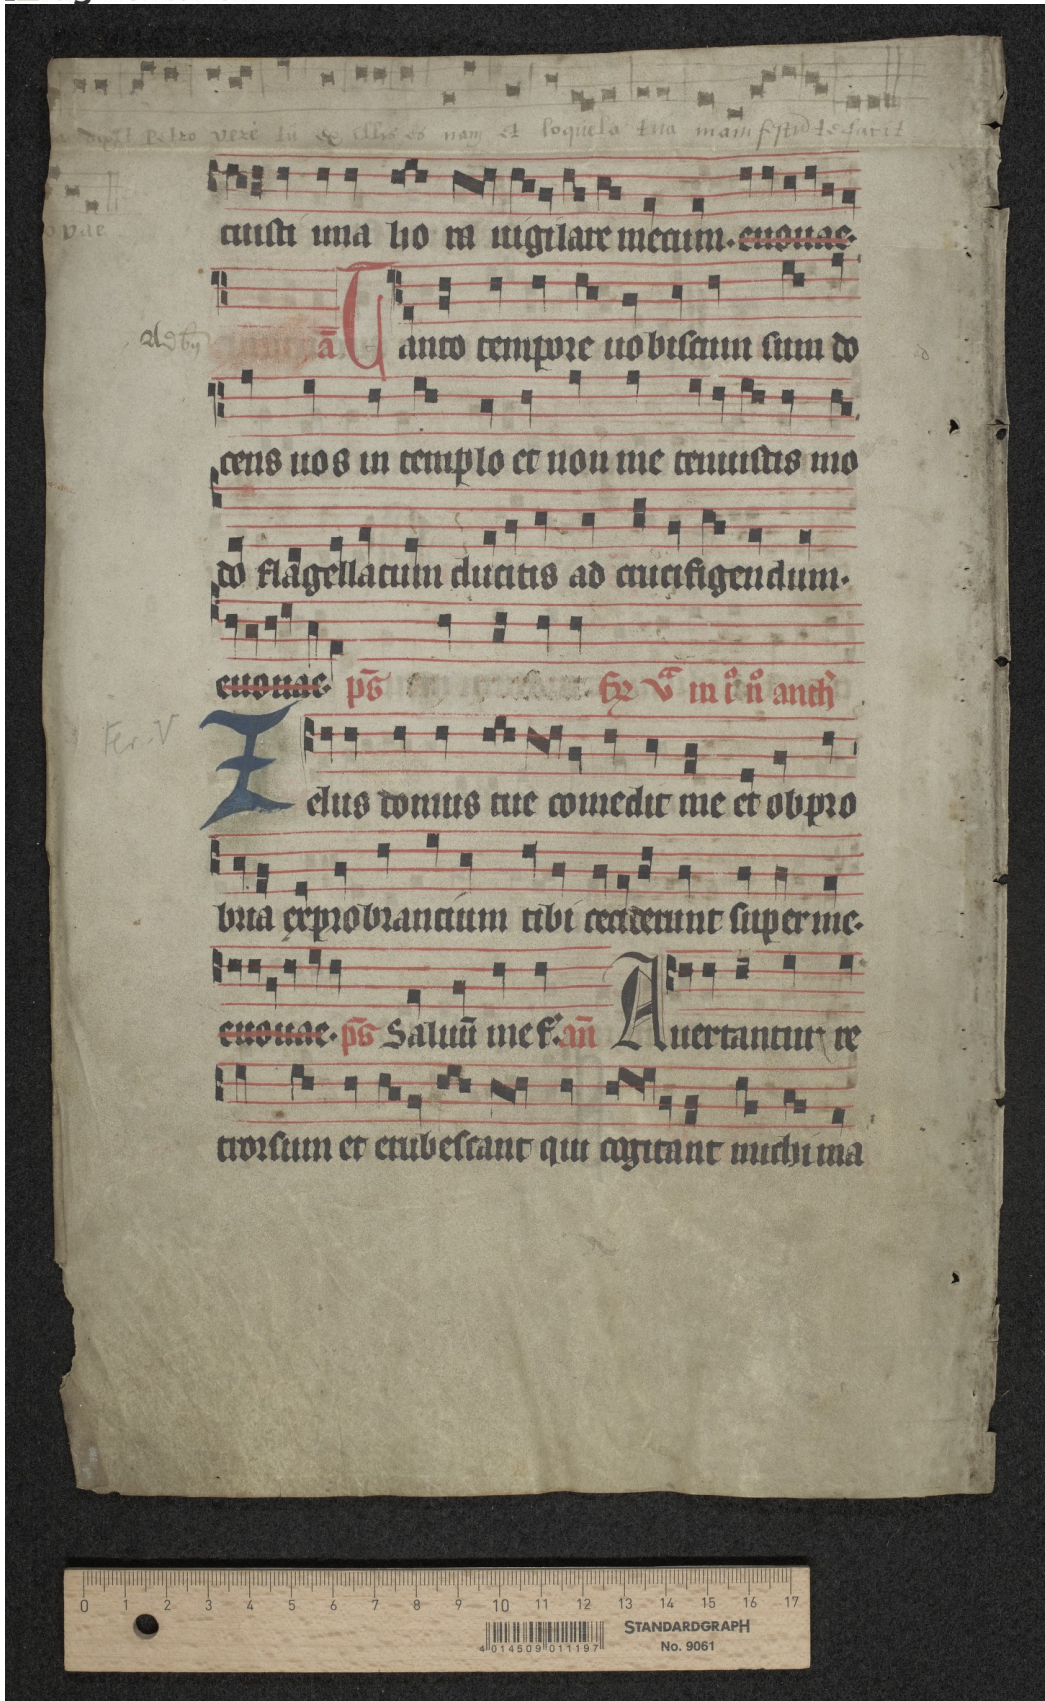 dixit petro vere tu ex illis es nam et loquela tua manifestū te facit
ovae
cuisti una ho ra uigilare mecum. euouae.
Ad bn̄
a̅ Tanto tempore uobiscum sum do
cens uos in templo et non me tenuistis mo
do flagellatum ducitis ad crucifigendum.
euouae. ps̄ in i° n° anth
Fer. V
Zelus domus tue comedit me et obpro
bria exprobrantium tibi ceciderunt super me.
euouae. ps̄ Saluū me f. an̄ Auertantur re
trorsum et erubescant qui cogitant michi ma
0 1 2 3 4 5 6 7 8 9 10 11 12 13 14 15 16 17
STANDARDGRAPH
No. 9061
4 014509 011197